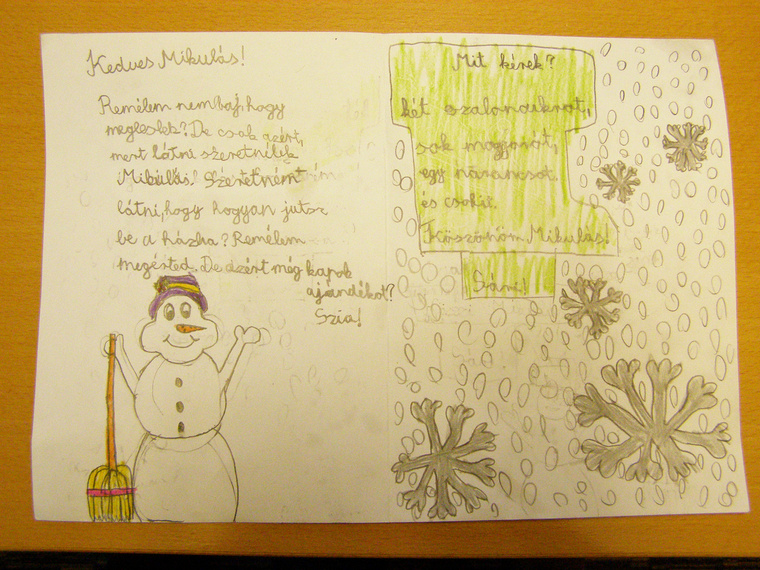 Kedves Mikulás!
Remélem nem baj, hogy
megleslek? De csak azért,
mert látni szeretnélek
Mikulás! Szeretném
látni, hogy hogyan jutsz
be a házba? Remélem
megérted. De azért még kapok
ajándékot?
Szia!
Mit kérek?
két szaloncukrot,
sok mogyorót,
egy narancsot
és csokit.
Köszönöm Mikulás!